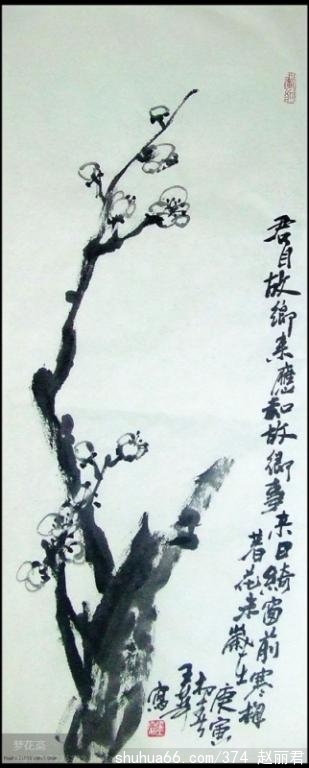 君自故鄉来應知故鄉事来日綺窗前寒梅
著花未歲在
庚寅
初春
王
寫
梦花斋
shuhua66.com/374 赵丽君